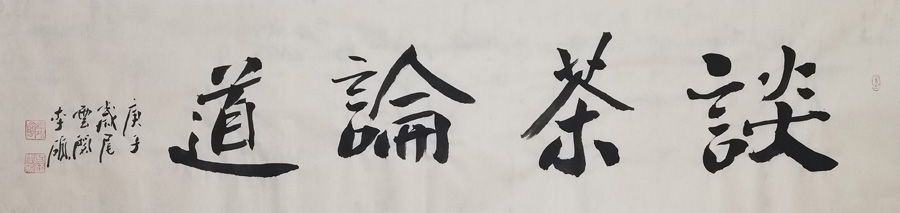 談茶論道
庚子
歲尾
雲閣
李碩